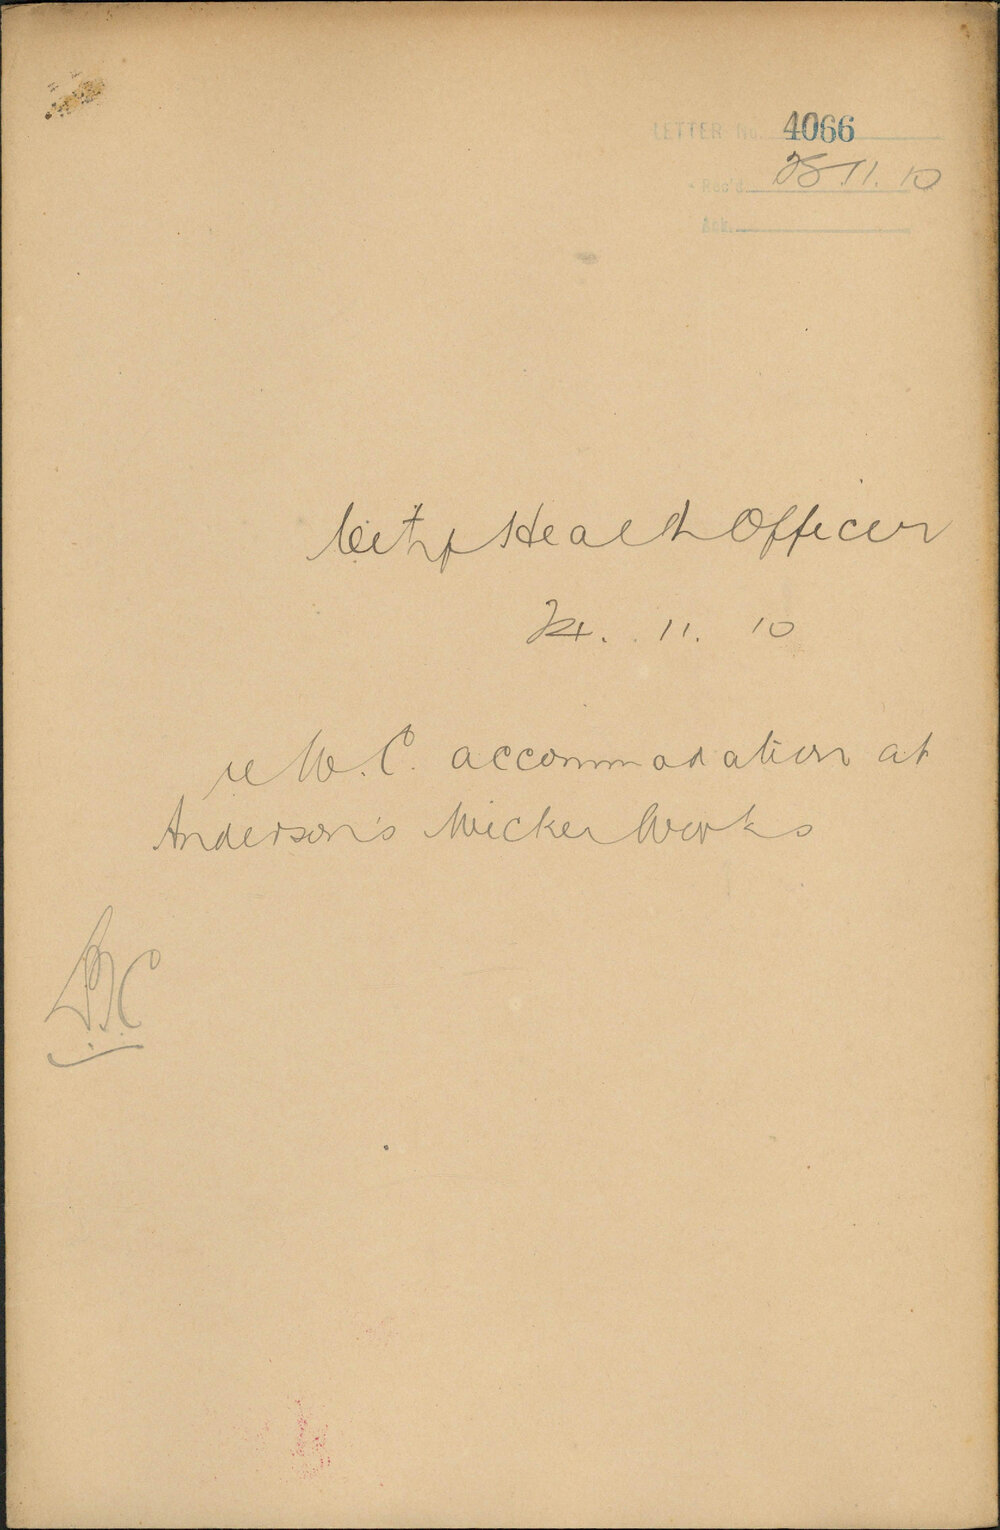 LETTER No. 4066
Rec'd 25.11.10
Ack.
City Health Officer
24. 11. 10
re W.C. accommodation at
Anderson's Wicker Works